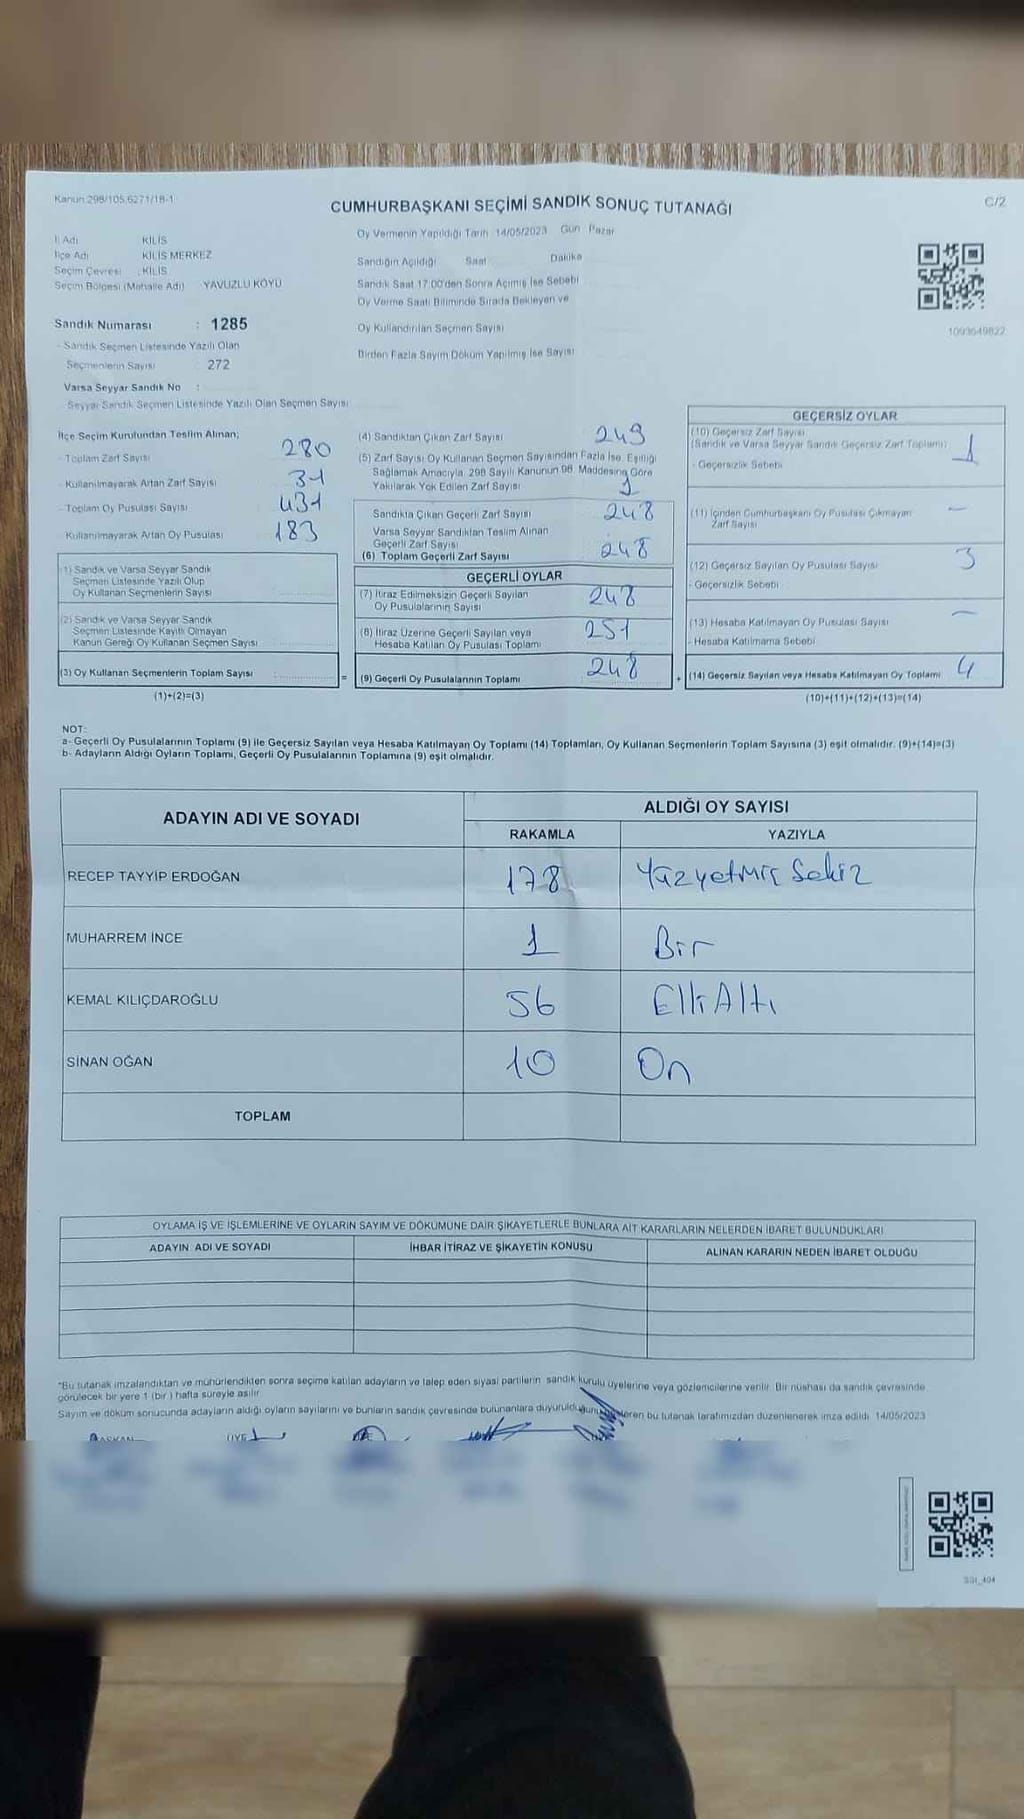 Kanun 298/105,6271/18-1
CUMHURBAŞKANI SEÇİMİ SANDIK SONUÇ TUTANAĞI
C/2
İl Adı KİLİS
İlçe Adı KİLİS MERKEZ
Seçim Çevresi : KİLİS
Seçim Bölgesi (Mahalle Adı) YAVUZLU KÖYÜ
Oy Vermenin Yapıldığı Tarih 14/05/2023 Gün Pazar
Sandığın Açıldığı Saat Dakika
Sandık Saat 17:00'den Sonra Açımış İse Sebebi
Oy Verme Saati Bitiminde Sırada Bekleyen ve
Oy Kullandırılan Seçmen Sayısı
Birden Fazla Sayım Döküm Yapılmış İse Sayısı
1093649822
Sandık Numarası : 1285
- Sandık Seçmen Listesinde Yazılı Olan
Seçmenlerin Sayısı : 272
Varsa Seyyar Sandık No :
- Seyyar Sandık Seçmen Listesinde Yazılı Olan Seçmen Sayısı
İlçe Seçim Kurulundan Teslim Alınan;
- Toplam Zarf Sayısı 280
- Kullanılmayarak Artan Zarf Sayısı 31
- Toplam Oy Pusulası Sayısı 431
- Kullanılmayarak Artan Oy Pusulası 183
(1) Sandık ve Varsa Seyyar Sandık
Seçmen Listesinde Yazılı Olup
Oy Kullanan Seçmenlerin Sayısı
(2) Sandık ve Varsa Seyyar Sandık
Seçmen Listesinde Kayıtlı Olmayan
Kanun Gereği Oy Kullanan Seçmen Sayısı
(3) Oy Kullanan Seçmenlerin Toplam Sayısı =
(1)+(2)=(3)
(4) Sandıktan Çıkan Zarf Sayısı 249
(5) Zarf Sayısı Oy Kullanan Seçmen Sayısından Fazla İse, Eşitliği
Sağlamak Amacıyla, 298 Sayılı Kanunun 98. Maddesine Göre
Yakılarak Yok Edilen Zarf Sayısı 1
Sandıkta Çıkan Geçerli Zarf Sayısı 248
Varsa Seyyar Sandıktan Teslim Alınan
Geçerli Zarf Sayısı
(6) Toplam Geçerli Zarf Sayısı 248
GEÇERLİ OYLAR
(7) İtiraz Edilmeksizin Geçerli Sayılan
Oy Pusulalarının Sayısı 248
(8) İtiraz Üzerine Geçerli Sayılan veya
Hesaba Katılan Oy Pusulası Toplamı 251
(9) Geçerli Oy Pusulalarının Toplamı 248 +
GEÇERSİZ OYLAR
(10) Geçersiz Zarf Sayısı
(Sandık ve Varsa Seyyar Sandık Geçersiz Zarf Toplamı) 1
- Geçersizlik Sebebi
(11) İçinden Cumhurbaşkanı Oy Pusulası Çıkmayan
Zarf Sayısı —
(12) Geçersiz Sayılan Oy Pusulası Sayısı 3
- Geçersizlik Sebebi
(13) Hesaba Katılmayan Oy Pusulası Sayısı —
- Hesaba Katılmama Sebebi
(14) Geçersiz Sayılan veya Hesaba Katılmayan Oy Toplamı 4
(10)+(11)+(12)+(13)=(14)
NOT:
a- Geçerli Oy Pusulalarının Toplamı (9) ile Geçersiz Sayılan veya Hesaba Katılmayan Oy Toplamı (14) Toplamları, Oy Kullanan Seçmenlerin Toplam Sayısına (3) eşit olmalıdır. (9)+(14)=(3)
b- Adayların Aldığı Oyların Toplamı, Geçerli Oy Pusulalarının Toplamına (9) eşit olmalıdır.
ADAYIN ADI VE SOYADI
ALDIĞI OY SAYISI
RAKAMLA YAZIYLA
RECEP TAYYİP ERDOĞAN 178 Yüzyetmiş Sekiz
MUHARREM İNCE 1 Bir
KEMAL KILIÇDAROĞLU 56 Elli Altı
SİNAN OĞAN 10 On
TOPLAM
OYLAMA İŞ VE İŞLEMLERİNE VE OYLARIN SAYIM VE DÖKÜMÜNE DAİR ŞİKAYETLERLE BUNLARA AİT KARARLARIN NELERDEN İBARET BULUNDUKLARI
ADAYIN ADI VE SOYADI İHBAR İTİRAZ VE ŞİKAYETİN KONUSU ALINAN KARARIN NEDEN İBARET OLDUĞU
*Bu tutanak imzalandıktan ve mühürlendikten sonra seçime katılan adayların ve talep eden siyasi partilerin sandık kurulu üyelerine veya gözlemcilerine verilir. Bir nüshası da sandık çevresinde
görülecek bir yere 1 (bir) hafta süreyle asılır.
Sayım ve döküm sonucunda adayların aldığı oyların sayılarını ve bunların sandık çevresinde bulunanlara duyurulduğunu gösteren bu tutanak tarafımızdan düzenlenerek imza edildi. 14/05/2023
BAŞKAN ÜYE